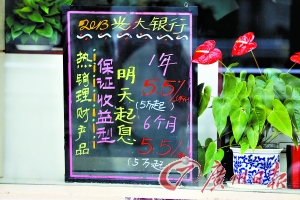 2013 光大银行
热销理财产品
保证收益型
明天起息
1年
5.5%
(5万起)
6个月
5.5%
(5万起)
广州日报